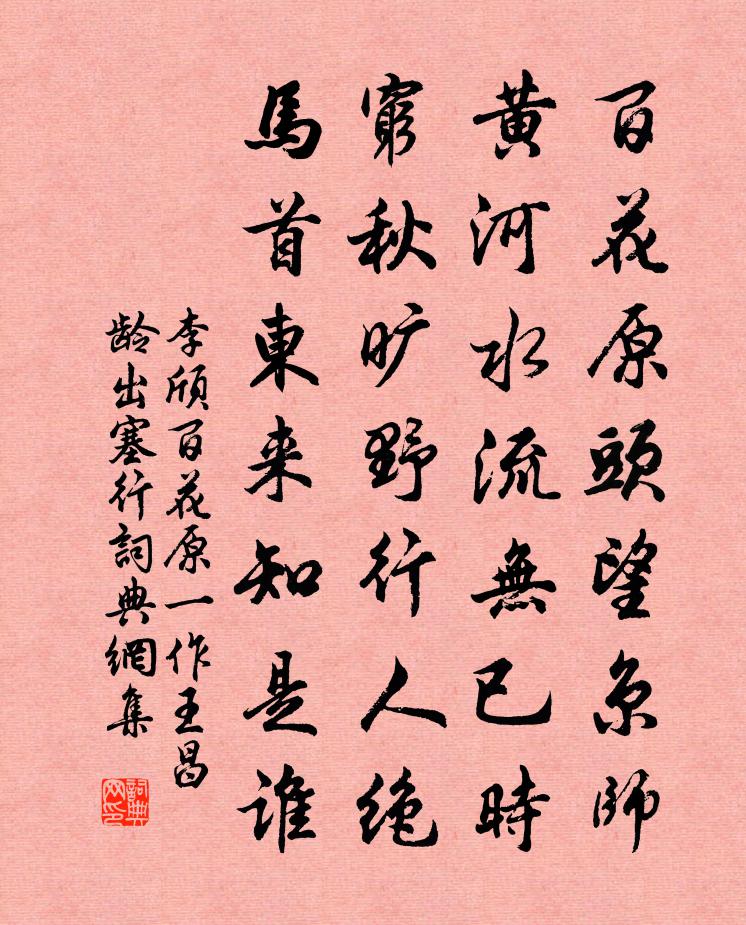 百花原頭望京師
黄河水流無已時
窮秋旷野行人绝
馬首東来知是谁
李頎百花原一作王昌
龄出塞行詞典網集
詞典网印